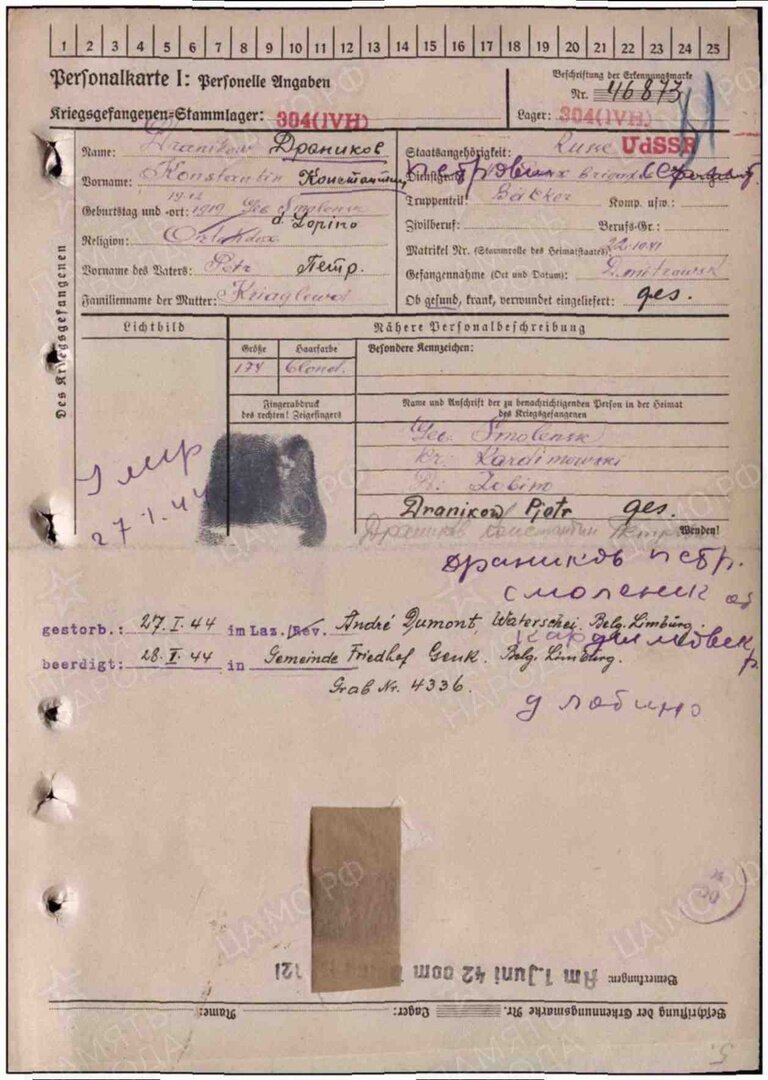 1 2 3 4 5 6 7 8 9 10 11 12 13 14 15 16 17 18 19 20 21 22 23 24 25
Personalkarte I: Personelle Angaben
Beschriftung der Erkennungsmarke
Nr. 46873
Kriegsgefangenen-Stammlager: 304(IVH)
Lager: 304(IVH)
Des Kriegsgefangenen
Name: Dranikow Драников
Vorname: Konstantin Константин Петрович
Geburtstag und -ort: 1919 Geb. Smolensk
d. Lopino
Religion: Orthodox
Vorname des Vaters: Petr Петр.
Familienname der Mutter:
Staatsangehörigkeit: Russe UdSSR
Dienstgrad:
Truppenteil: Komp. usw.:
Zivilberuf: Bäcker Berufs-Gr.:
Matrikel Nr. (Stammrolle des Heimatstaates):
Gefangennahme (Ort und Datum): Dmitrowsk
Ob gesund, krank, verwundet eingeliefert: ges.
Lichtbild
Nähere Personalbeschreibung
Größe Haarfarbe Besondere Kennzeichen:
174 blond.
Fingerabdruck
des rechten! Zeigefingers
Name und Anschrift der zu benachrichtigenden Person in der Heimat
des Kriegsgefangenen
Geb. Smolensk
Kr. Kardimowski
D. Lobino
Dranikow Pjotr ges.
Драников Константин Петр
Wenden!
Умер
27.1.44
Драников Петр.
Смоленск об
gestorb.: 27.I.44 im Laz./Rev. André Dumont, Waterschei. Belg. Limburg.
Кардимовск р.
beerdigt: 28.I.44 in Gemeinde Friedhof Genk. Belg. Limburg.
Grab Nr. 4336.
д Лобино
Bemerkungen: Am 1. Juni 42 vom
Beschriftung der Erkennungsmarke Nr. Lager: Name:
5.
ЦАМО РФ
ПАМЯТЬ НАРОДА